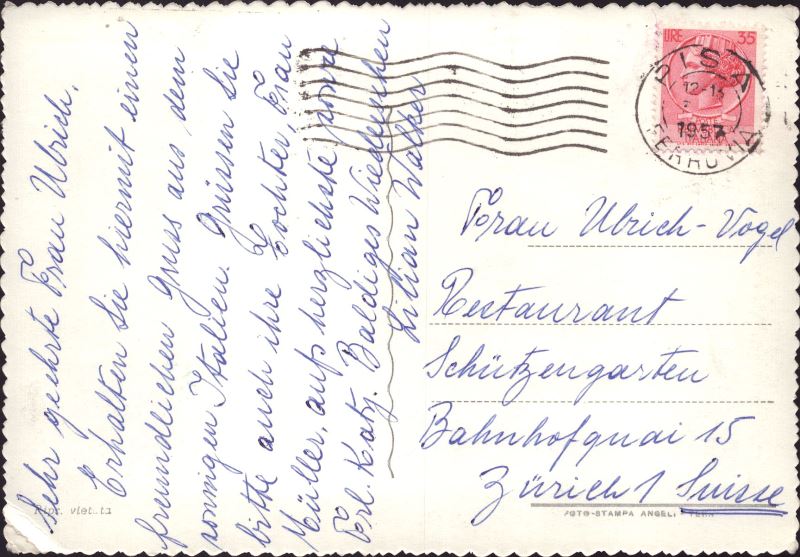 Sehr geehrte Frau Ulrich,
Erhalten Sie hiermit einen
freundlichen Gruss aus dem
sonnigen Italien. Grüssen Sie
bitte auch ihre Tochter, Frau
Müller, aufs herzlichste, sowie
Frl. Katz. Baldiges Wiedersehen
Lilian Walker
LIRE 35
PISA
12-13
1957
FERROVIA
Frau Ulrich-Vogel
Restaurant
Schützengarten
Bahnhofquai 15
Zürich 1 Suisse
Ripr. vietata
FOTO-STAMPA ANGELI